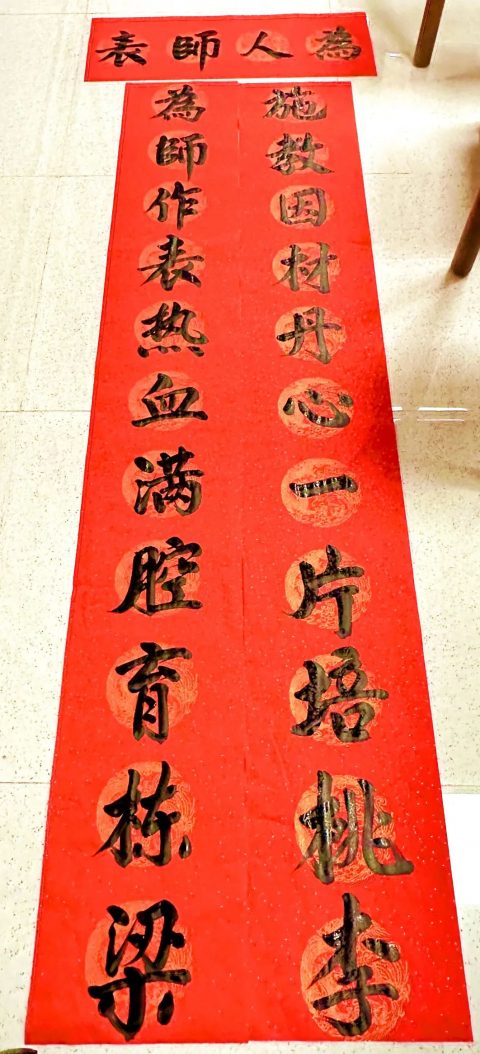 為人師表
施教因材丹心一片培桃李
為師作表热血满腔育栋梁